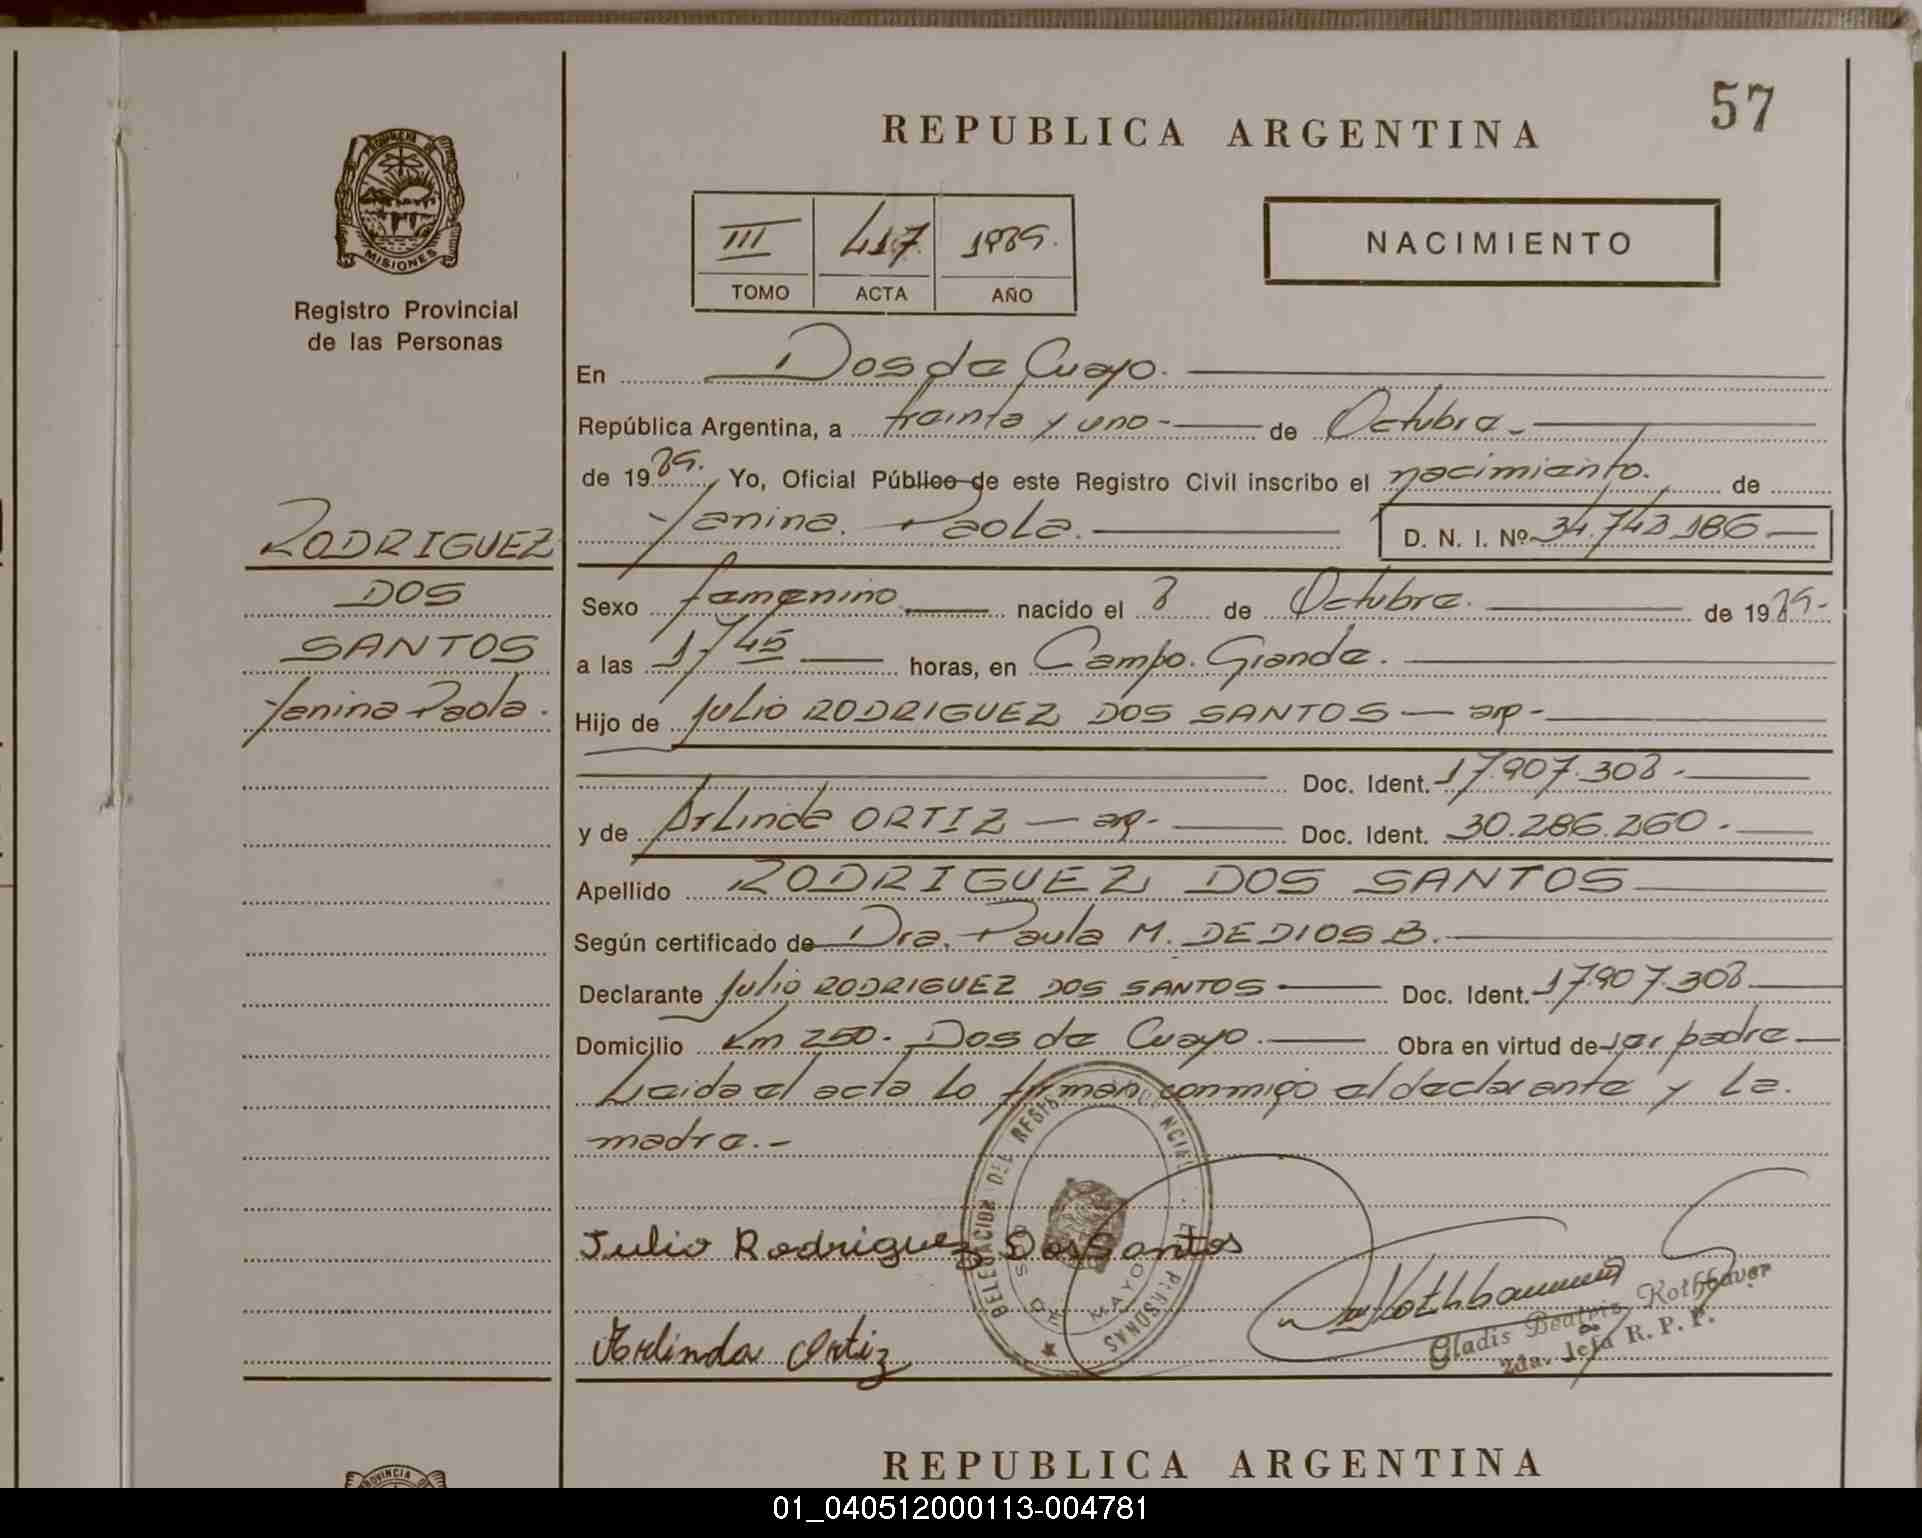 57
REPUBLICA ARGENTINA
PROVINCIA DE
MISIONES
Registro Provincial
de las Personas
III 417. 1989.
TOMO ACTA AÑO
NACIMIENTO
En Dos de Cuayo.
República Argentina, a treinta y uno - de Octubre -
de 1989. Yo, Oficial Público de este Registro Civil inscribo el nacimiento. de
Yanina. Paola. D. N. I. Nº 34.743.186
RODRIGUEZ
DOS
SANTOS
Yanina Paola.
Sexo femenino nacido el 8 de Octubre. de 1989.
a las 1,45 horas, en Campo. Grande.
Hijo de Julio RODRIGUEZ DOS SANTOS - arg -
Doc. Ident. 17.907.308 -
y de Arlinda ORTIZ - arg. - Doc. Ident. 30.286.260 -
Apellido RODRIGUEZ DOS SANTOS
Según certificado de Dra. Paula M. DEDIOS B.
Declarante Julio RODRIGUEZ DOS SANTOS Doc. Ident. 17.907.308
Domicilio Km 250 - Dos de Cuayo. Obra en virtud de ser padre
Leida el acta lo firman conmigo el declarante y la
madre. -
DELEGACION DEL PERSONAS
DOS DE MAYO
Julio Rodriguez Dos Santos
Arlinda Ortiz
Gladis Beatriz Rothbauer
2da. Jefa R. P. P.
REPUBLICA ARGENTINA
PROVINCIA
01_040512000113-004781